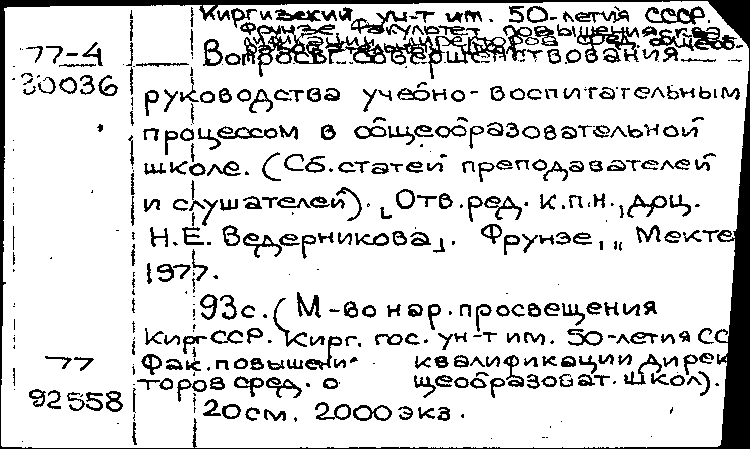 Киргизский ун-т им. 50-летия СССР.
Фрунзе. Факультет повышения ква
лификации директоров сред. общеоб
77-4 Вопросы совершенствования
30036
руководства учебно-воспитательным
процессом в общеобразовательной
школе. (Сб. статей преподавателей
и слушателей). [Отв. ред. к.п.н., доц.
Н.Е. Ведерникова]. Фрунзе, "Мекте
1977.
93с. (М-во нар. просвещения
КиргССР. Кирг. гос. ун-т им. 50-летия СС
77 Фак. повышени квалификации дирек
торов сред. о щеобразоват. школ).
92558 20см. 2000 экз.